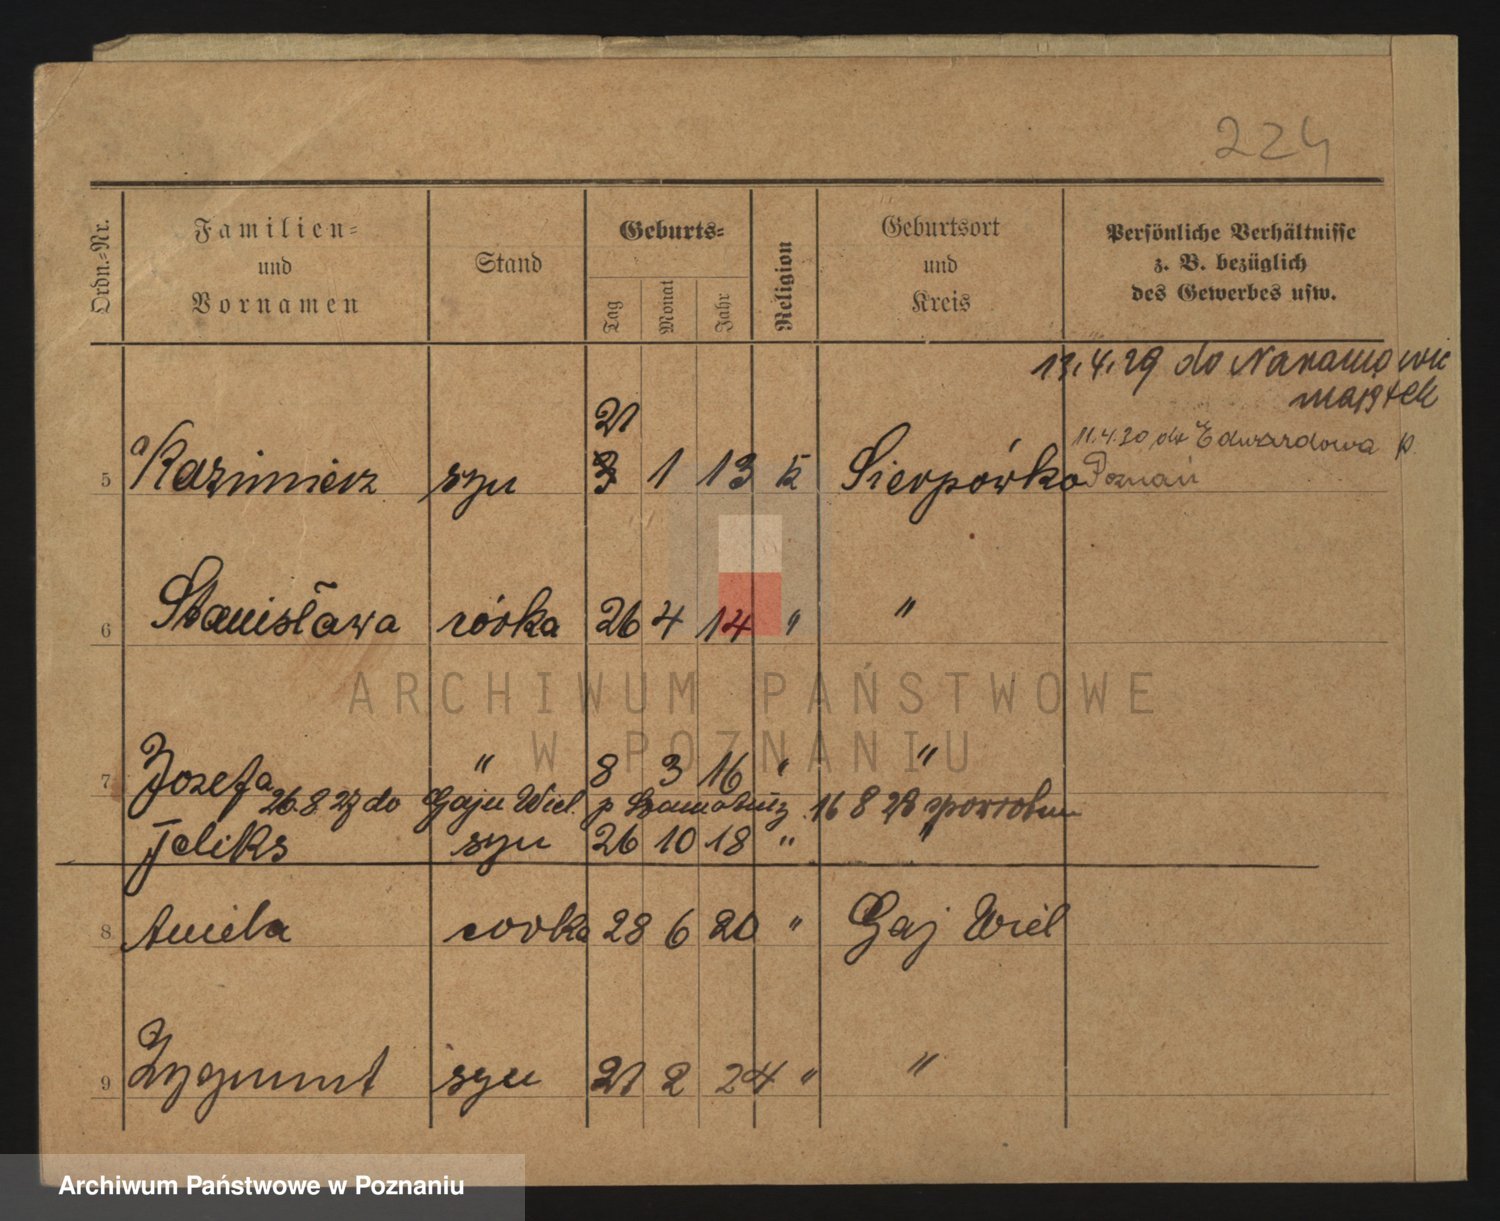 224
Ordn.-Nr.
Familien-
und
Vornamen
Stand
Geburts-
Tag
Monat
Jahr
Religion
Geburtsort
und
Kreis
Persönliche Verhältnisse
z. B. bezüglich
des Gewerbes usw.
17.4.29 do Naramowic
majątek
11.4.30 do Edwardowa p.
Poznań
5 Kazimierz syn 21 1 13 K Sierpówko
6 Stanisława córka 26 4 14 " "
7 Jozefa " 8 3 16 " "
26 8 27 do Gaju Wiel. p Szamotuły 16 8 28 spowrotem
Feliks syn 26 10 18 " "
8 Aniela corka 28 6 20 " Gaj Wiel
9 Zygmunt syn 21 2 24 " "
ARCHIWUM PAŃSTWOWE
W POZNANIU
Archiwum Państwowe w Poznaniu